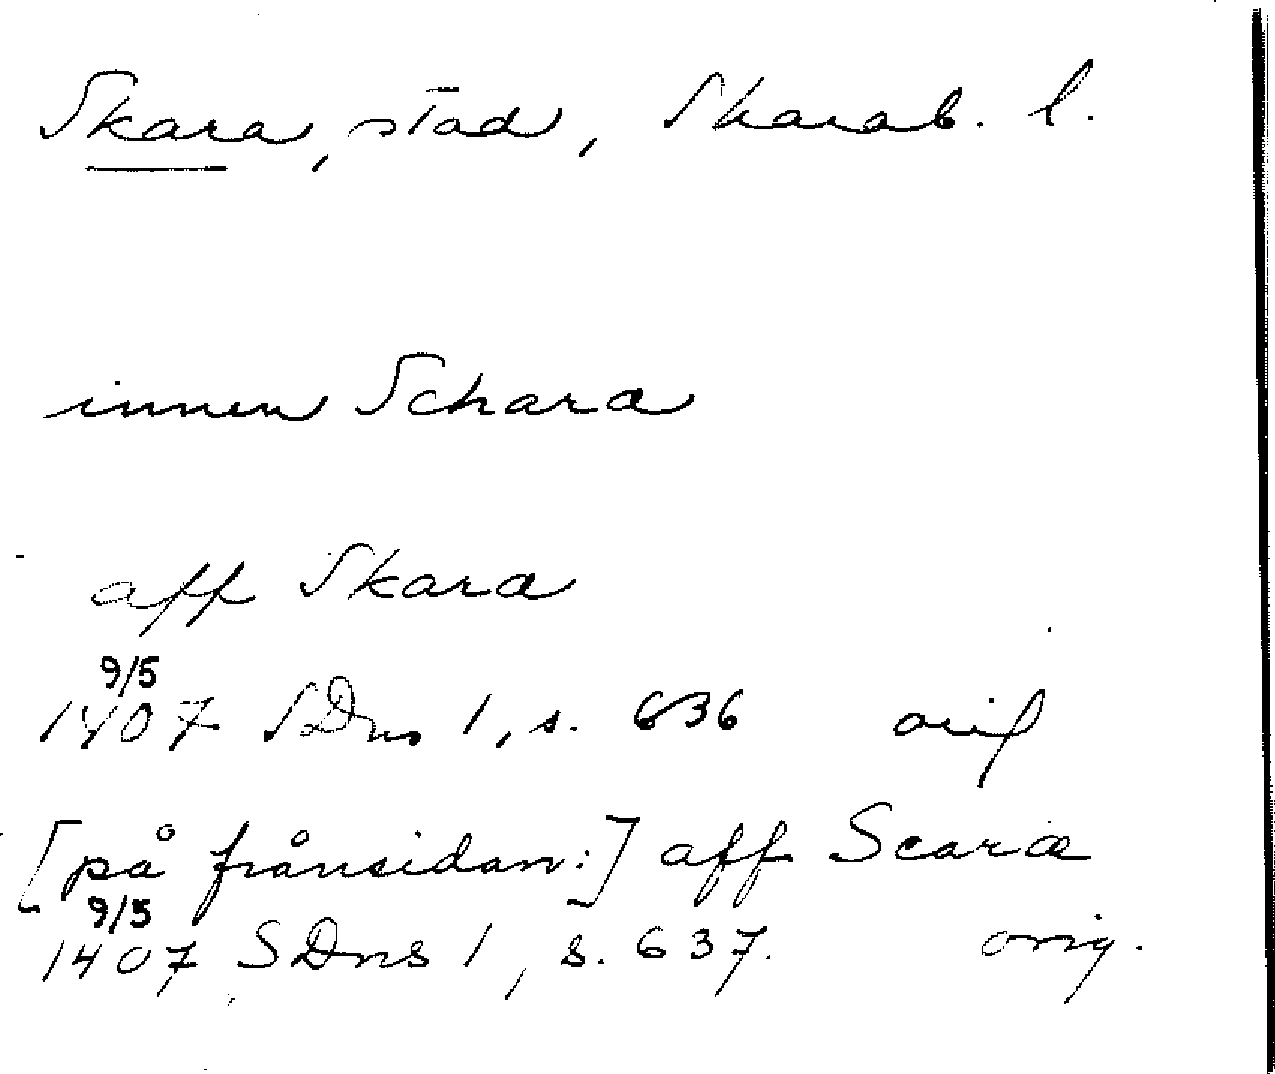 Skara, stad, Skarab. l.
innen Schara
aff Skara
9/5
1407 SDns 1, s. 636 orig
[på frånsidan:] aff Scara
9/5
1407 SDns 1, s. 637. orig.